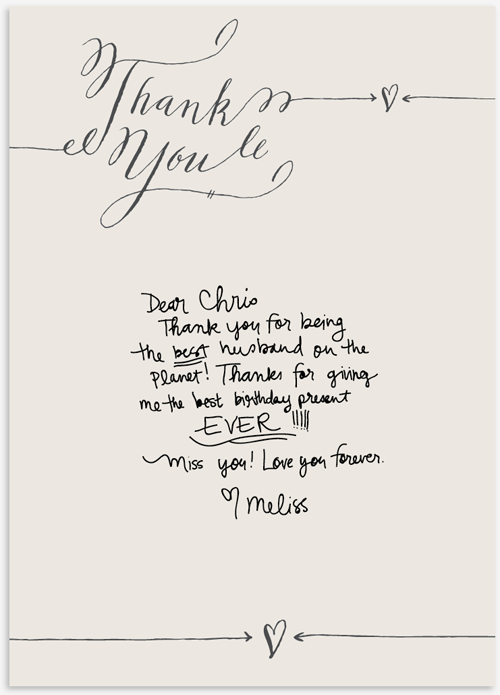 Thank
You
Dear Chris
Thank you for being
the best husband on the
planet! Thanks for giving
me the best birthday present
EVER !!!!!
Miss you! Love you forever.
Meliss